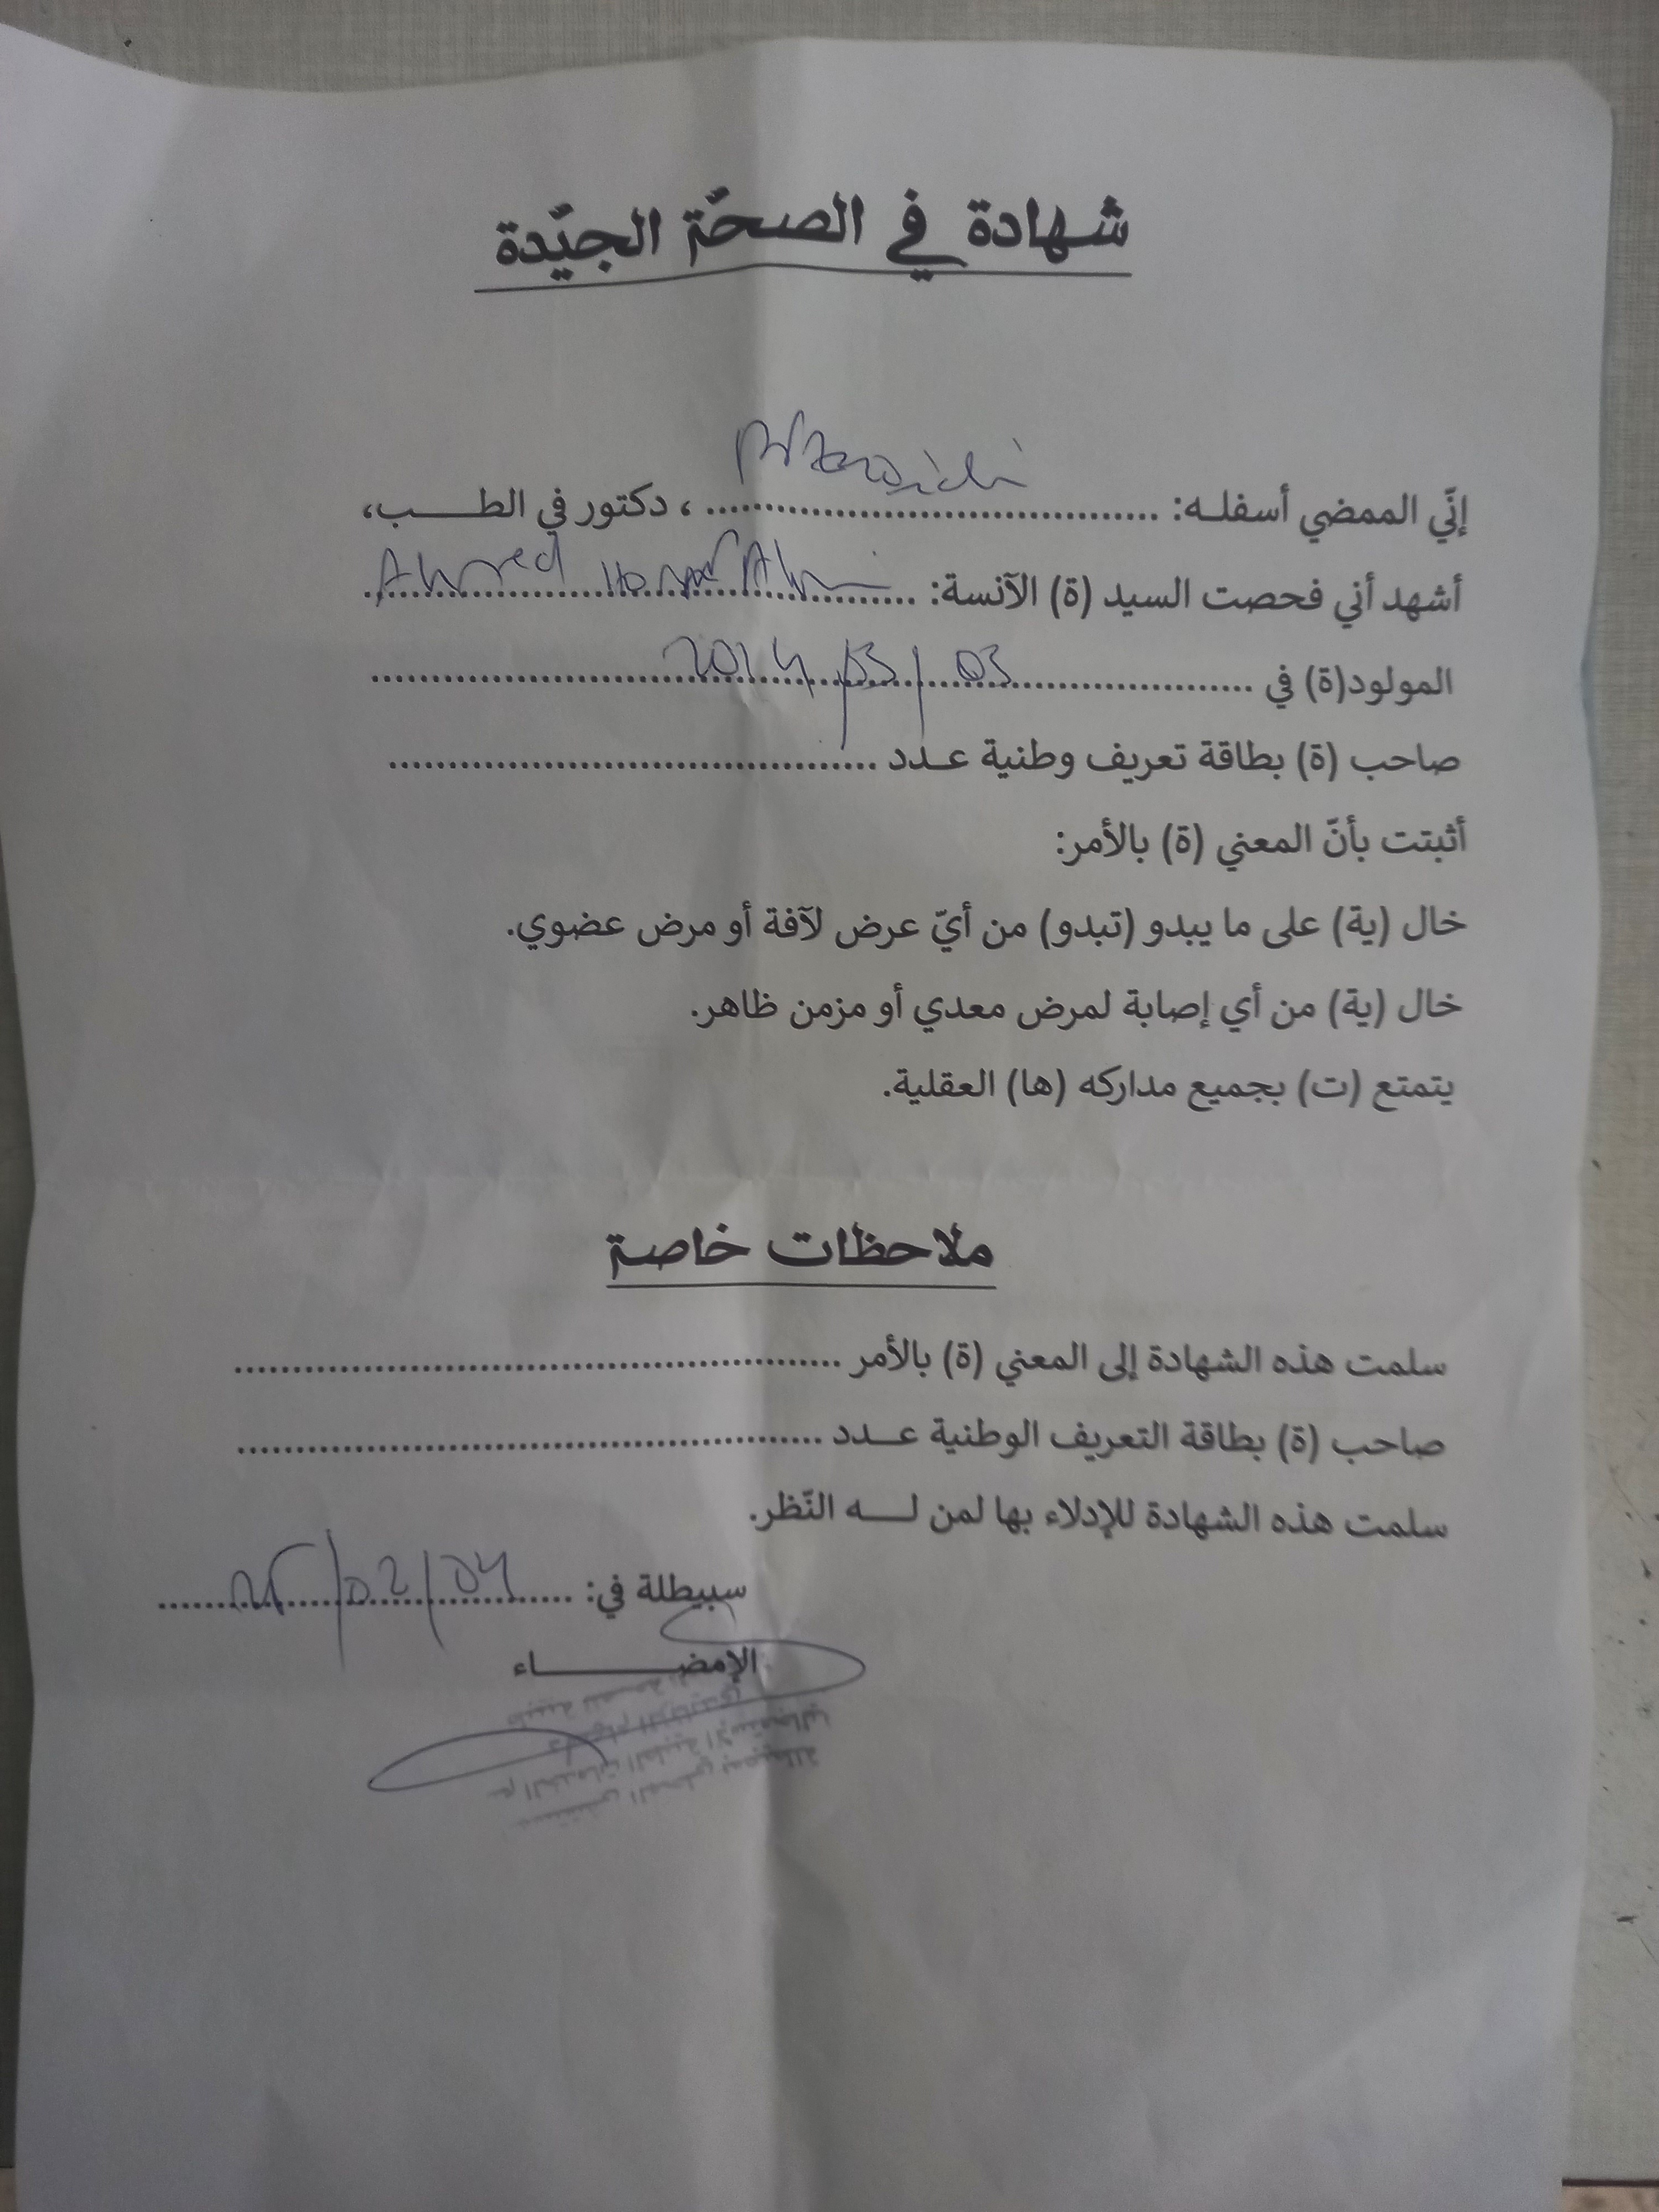 شهادة في الصحّة الجيّدة
إنّي الممضي أسفله: ........................................ ، دكتور في الطب،
أشهد أني فحصت السيد (ة) الآنسة: Ahmed
المولود(ة) في 2014/03/03
صاحب (ة) بطاقة تعريف وطنية عدد ........................................
أثبتت بأنّ المعني (ة) بالأمر:
خال (ية) على ما يبدو (تبدو) من أيّ عرض لآفة أو مرض عضوي.
خال (ية) من أي إصابة لمرض معدي أو مزمن ظاهر.
يتمتع (ت) بجميع مداركه (ها) العقلية.
ملاحظات خاصة
سلمت هذه الشهادة إلى المعني (ة) بالأمر ........................................
صاحب (ة) بطاقة التعريف الوطنية عدد ........................................
سلمت هذه الشهادة للإدلاء بها لمن له النّظر.
سبيطلة في: /02/04
الإمضاء